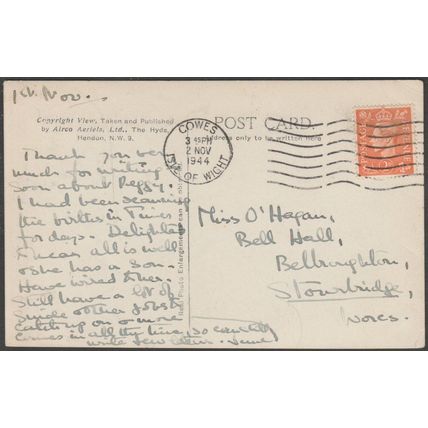 1st Nov.
Copyright View, Taken and Published
by Airco Aerials, Ltd., The Hyde,
Hendon, N.W. 9.
POST CARD.
Address only to be written here
COWES
3 PM
2 NOV
1944
ISLE OF WIGHT
POSTAGE
Thank you very
much for writing
soon about Peggy.
I had been scanning
the births in Times
for days. Delighted
to hear all is well
& she has a son.
Have wired her.
Still have a lot of
other jobs to
catching on & more
comes in all the time, so
write few letters.
Real Photo Enlargements can be
Miss O'Hagan,
Bell Hall,
Belbroughton,
Stourbridge,
Worcs.